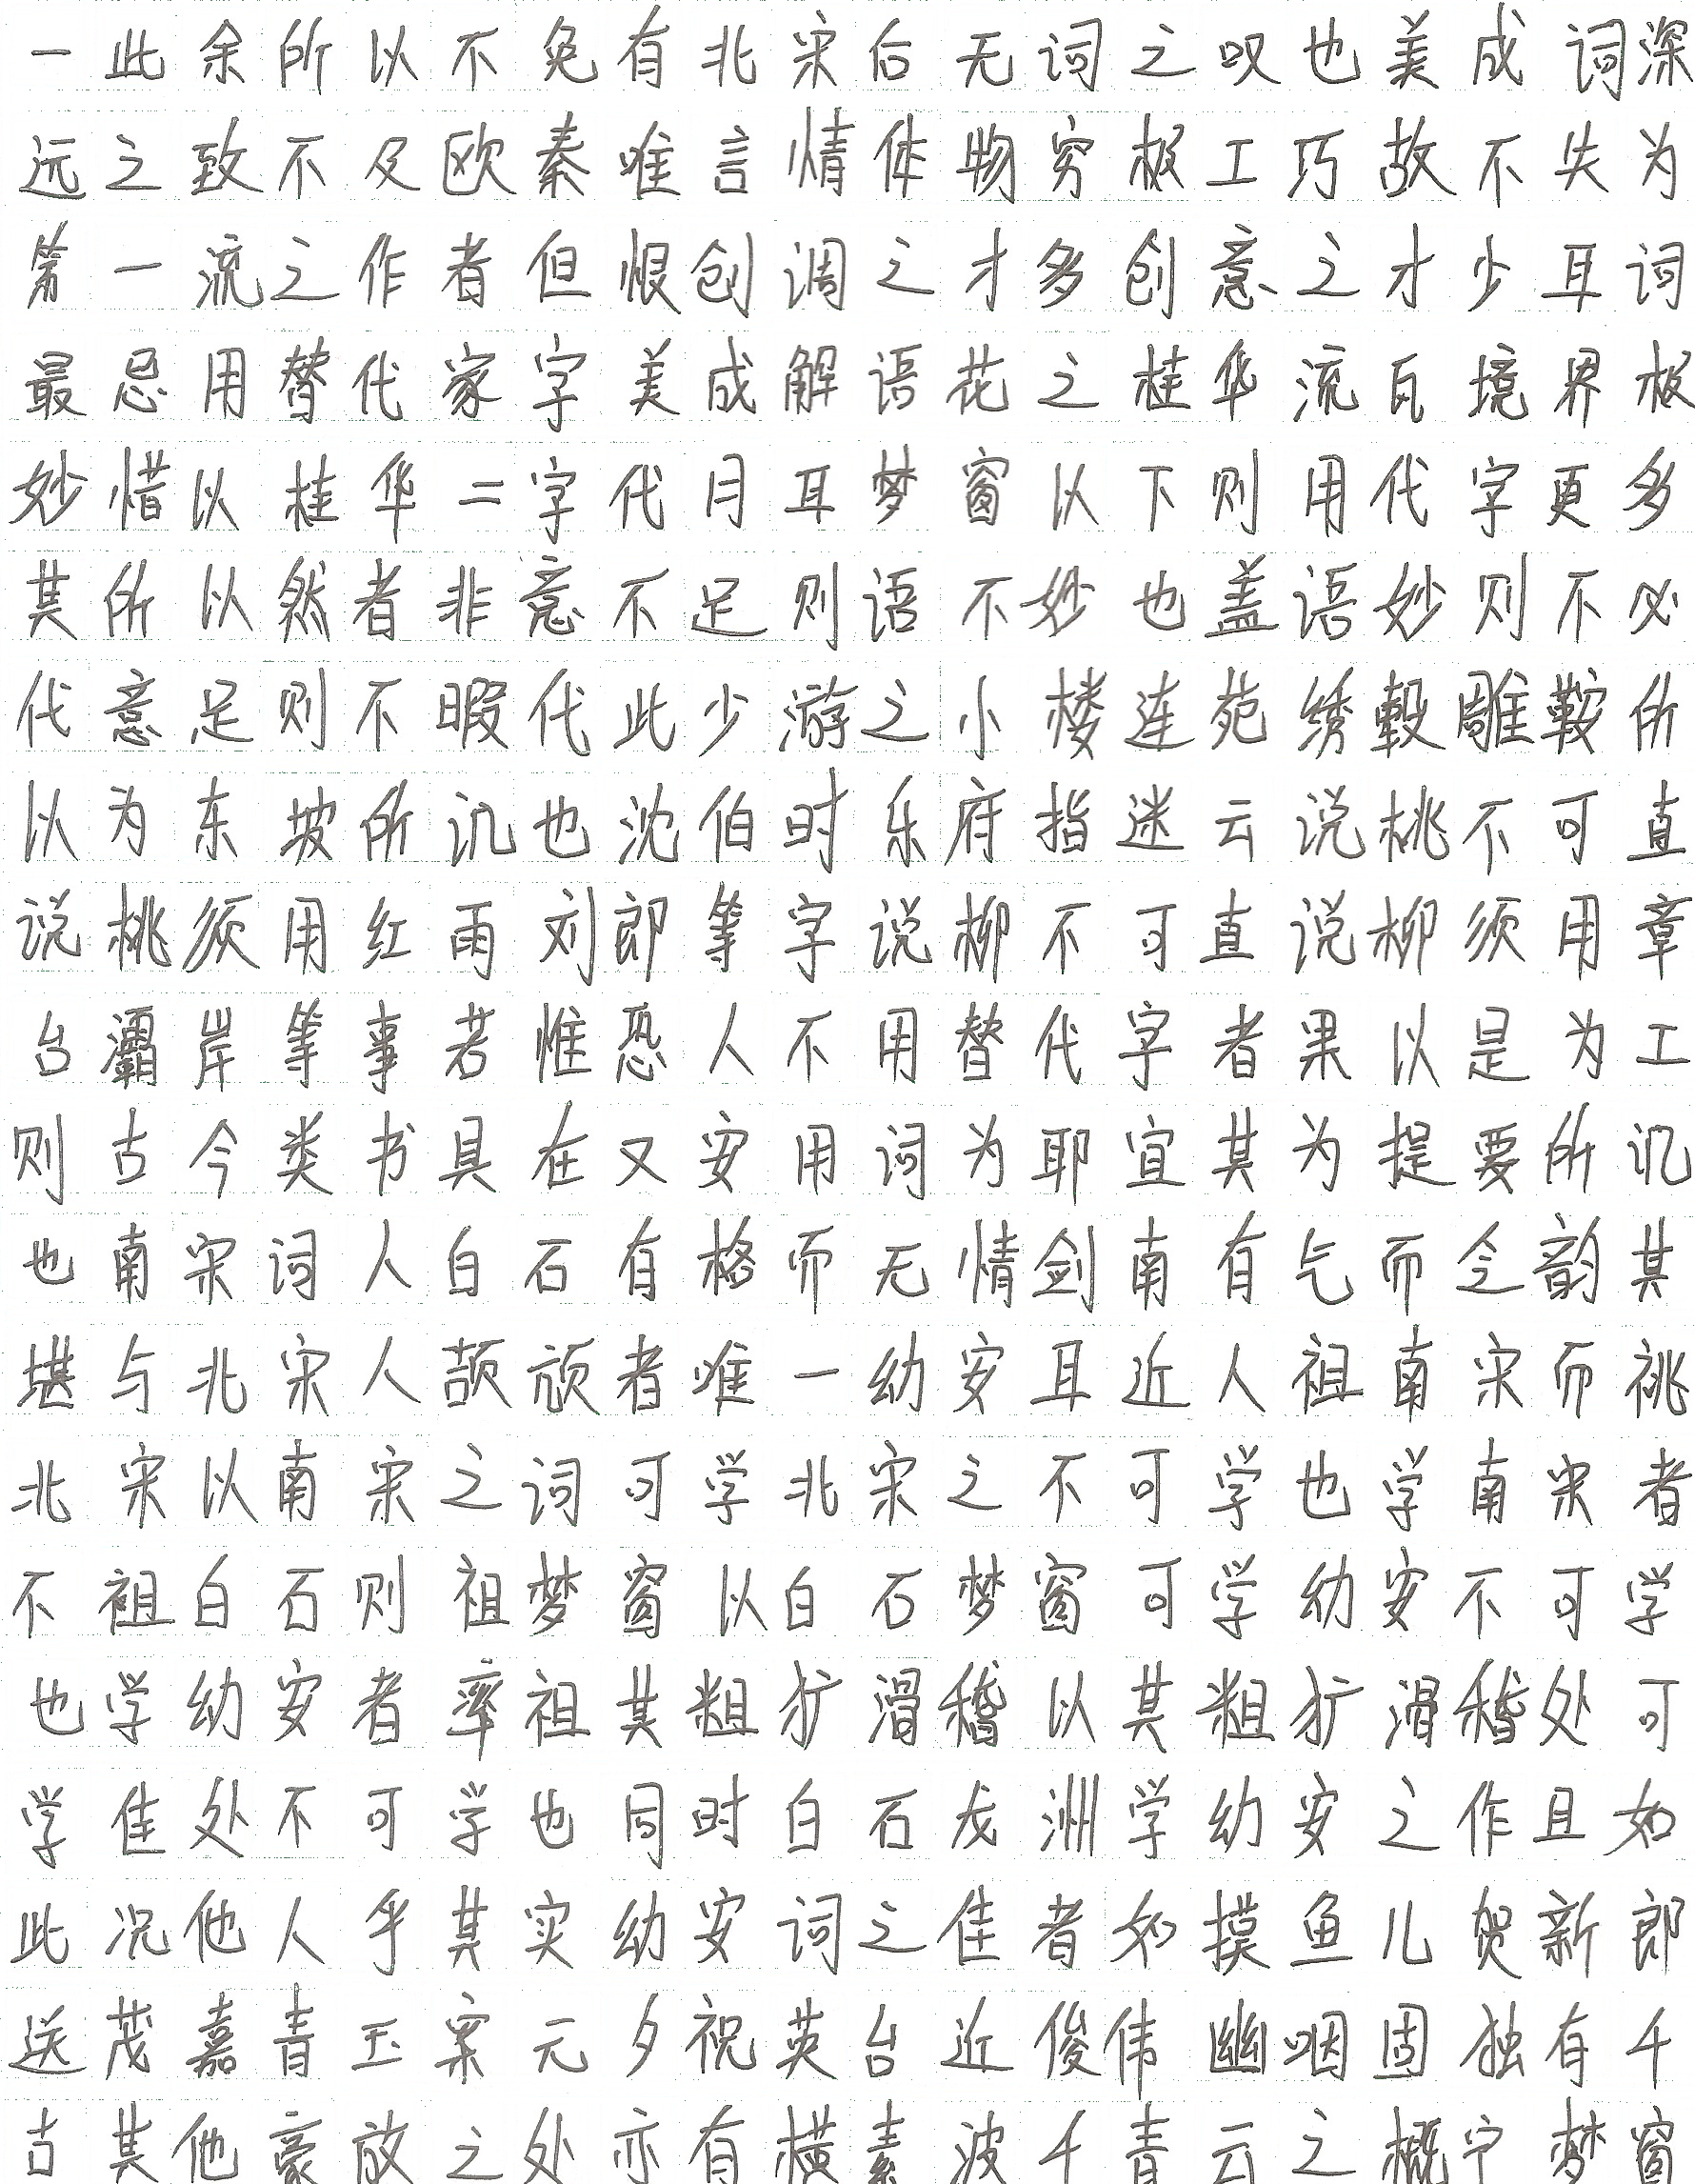 一此余所以不免有北宋后无词之叹也美成词深
远之致不及欧秦唯言情体物穷极工巧故不失为
第一流之作者但恨创调之才多创意之才少耳词
最忌用替代家字美成解语花之桂华流瓦境界极
妙惜以桂华二字代月耳梦窗以下则用代字更多
其所以然者非意不足则语不妙也盖语妙则不必
代意足则不暇代此少游之小楼连苑绣毂雕鞍所
以为东坡所讥也沈伯时乐府指迷云说桃不可直
说桃须用红雨刘郎等字说柳不可直说柳须用章
台灞岸等事若惟恐人不用替代字者果以是为工
则古今类书具在又安用词为耶宜其为提要所讥
也南宋词人白石有格而无情剑南有气而仝韵其
堪与北宋人颉颃者唯一幼安耳近人祖南宋而祧
北宋以南宋之词可学北宋之不可学也学南宋者
不祖白石则祖梦窗以白石梦窗可学幼安不可学
也学幼安者率祖其粗犷滑稽以其粗犷滑稽处可
学佳处不可学也同时白石龙洲学幼安之作且如
此况他人乎其实幼安词之佳者如摸鱼儿贺新郎
送茂嘉青玉案元夕祝英台近俊伟幽咽固独有千
古其他豪放之处亦有横素波千青云之概宁梦窗